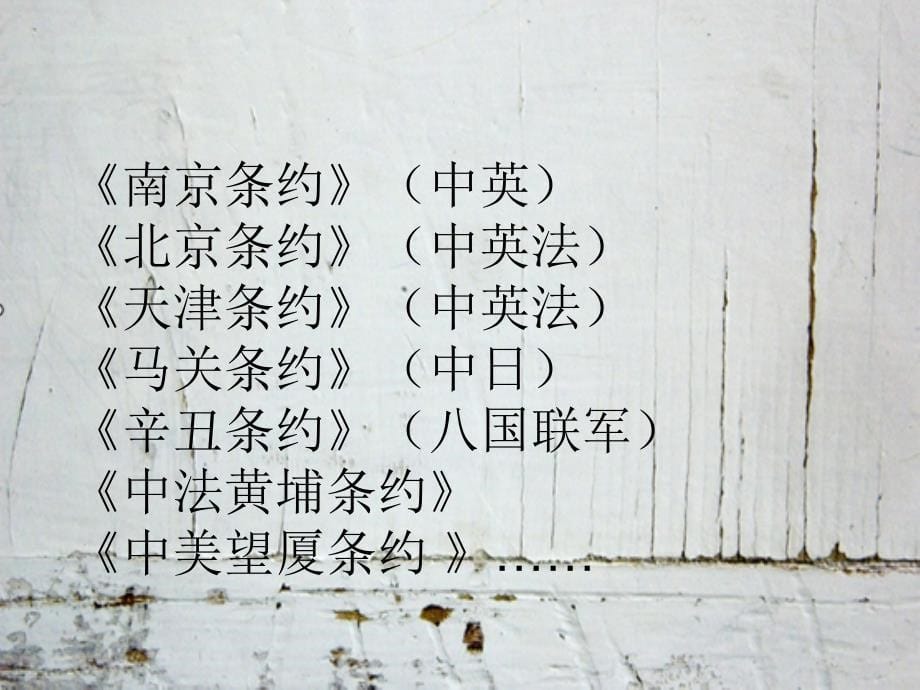 《南京条约》（中英）
《北京条约》（中英法）
《天津条约》（中英法）
《马关条约》（中日）
《辛丑条约》（八国联军）
《中法黄埔条约》
《中美望厦条约 》……